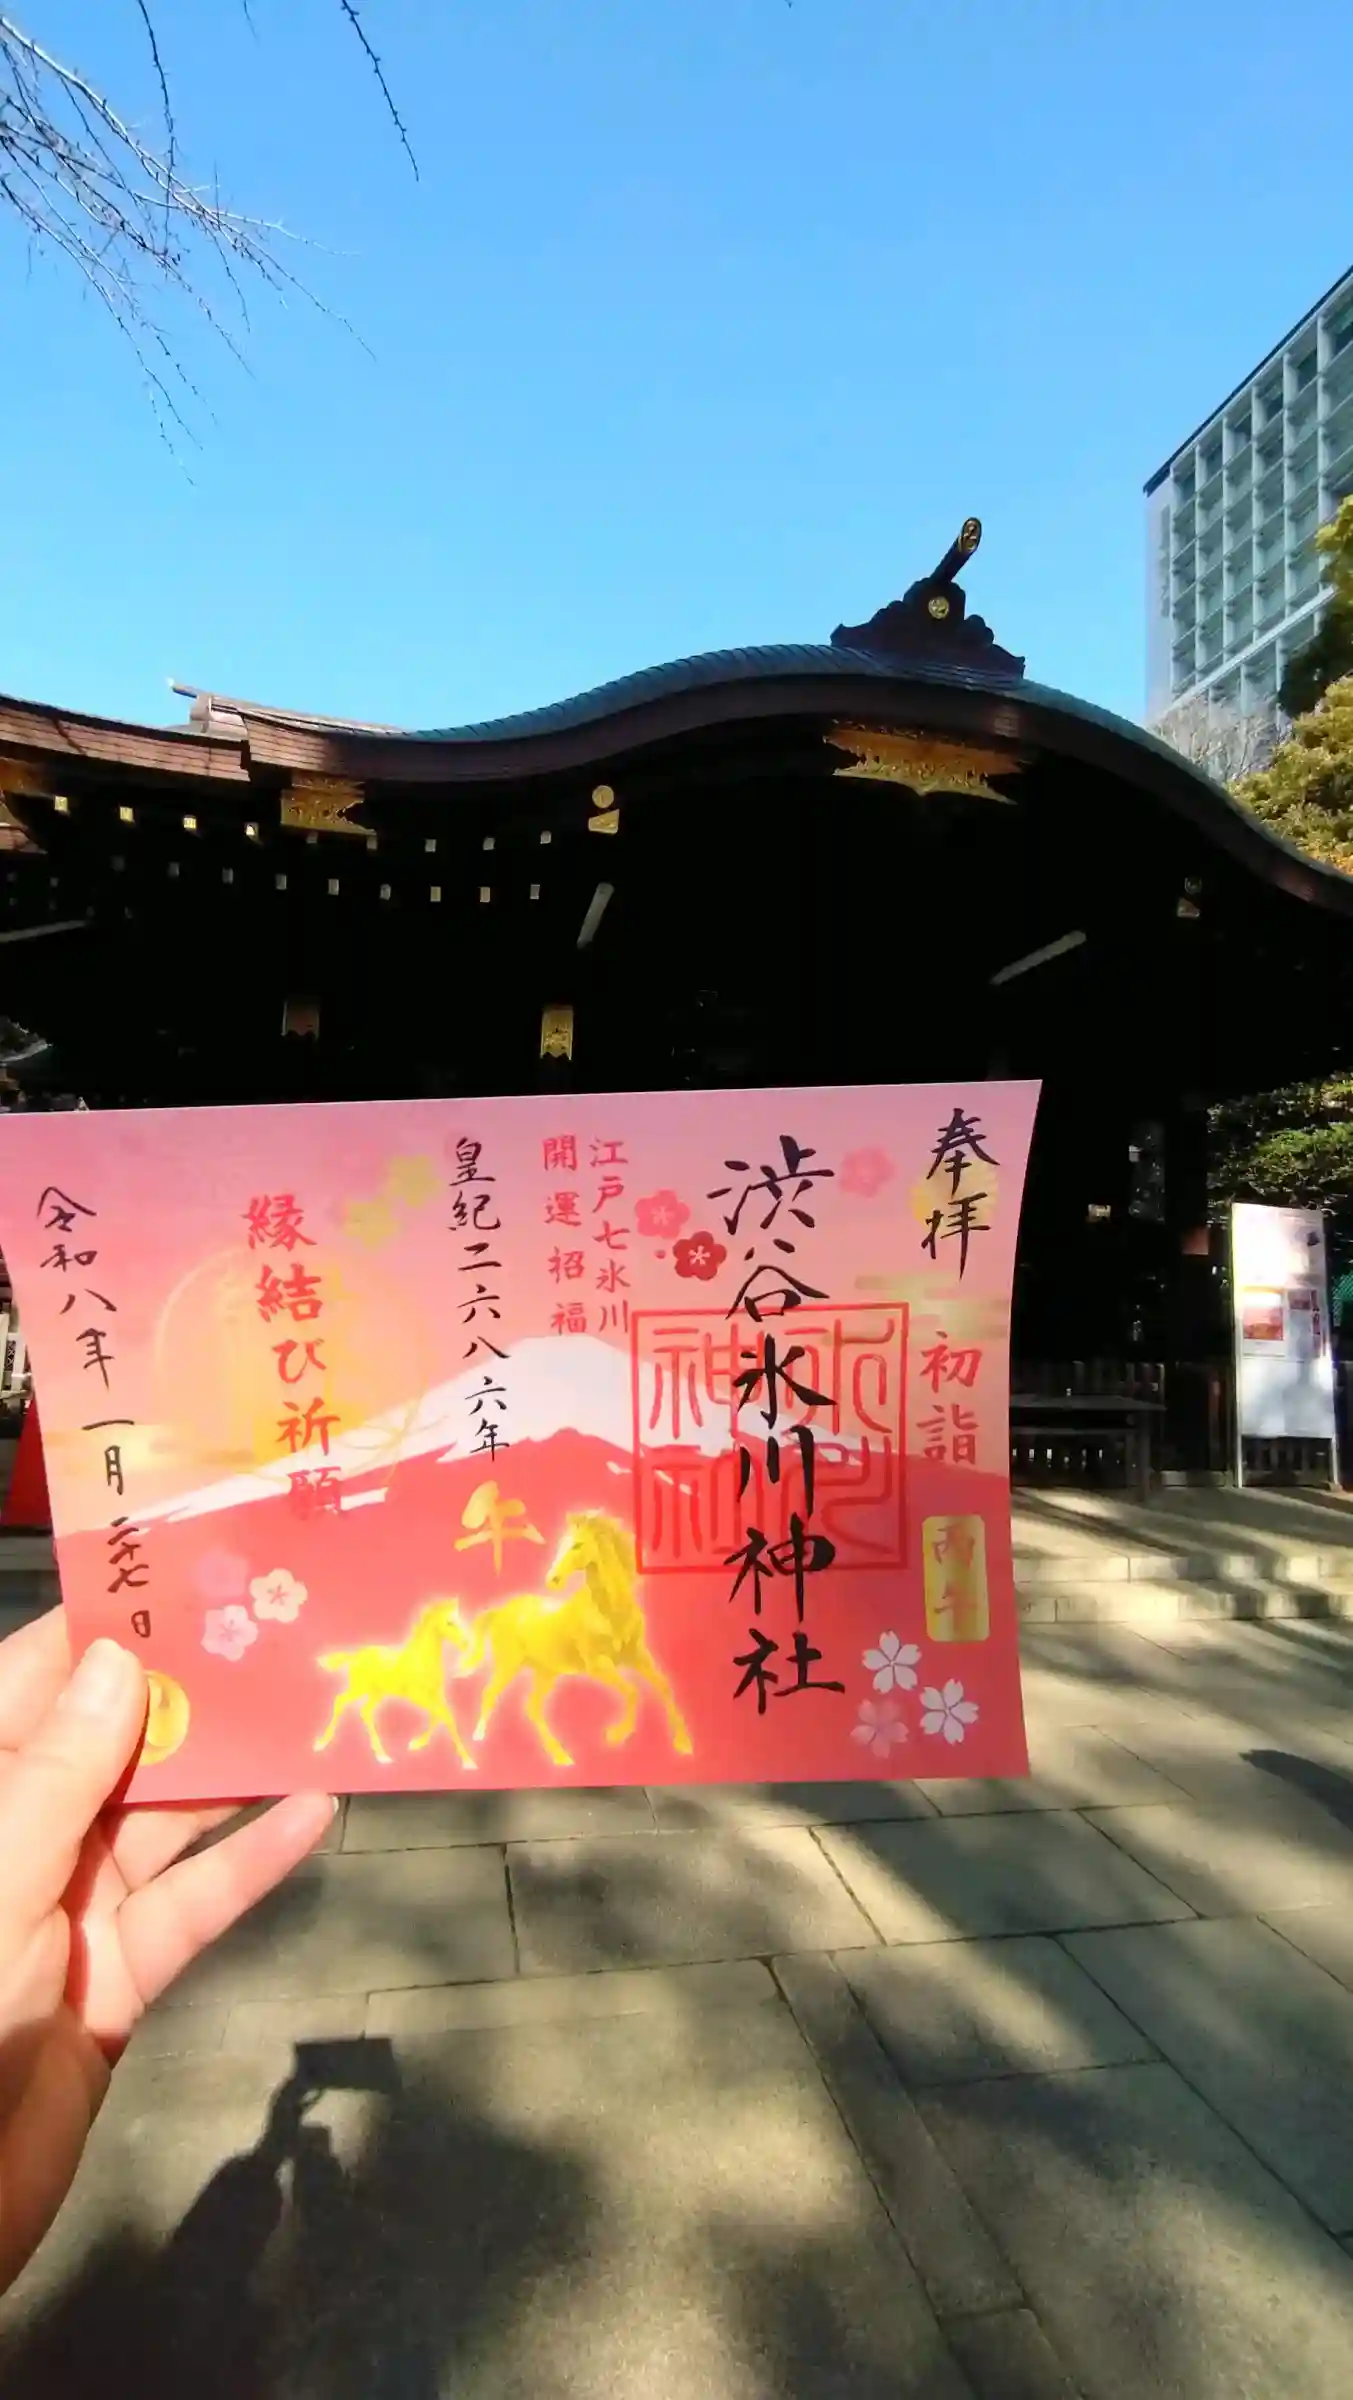 奉拝
初詣
丙午
渋谷氷川神社
氷川神社
江戸七氷川
開運招福
皇紀二六八六年
午
縁結び祈願
令和八年一月二十七日